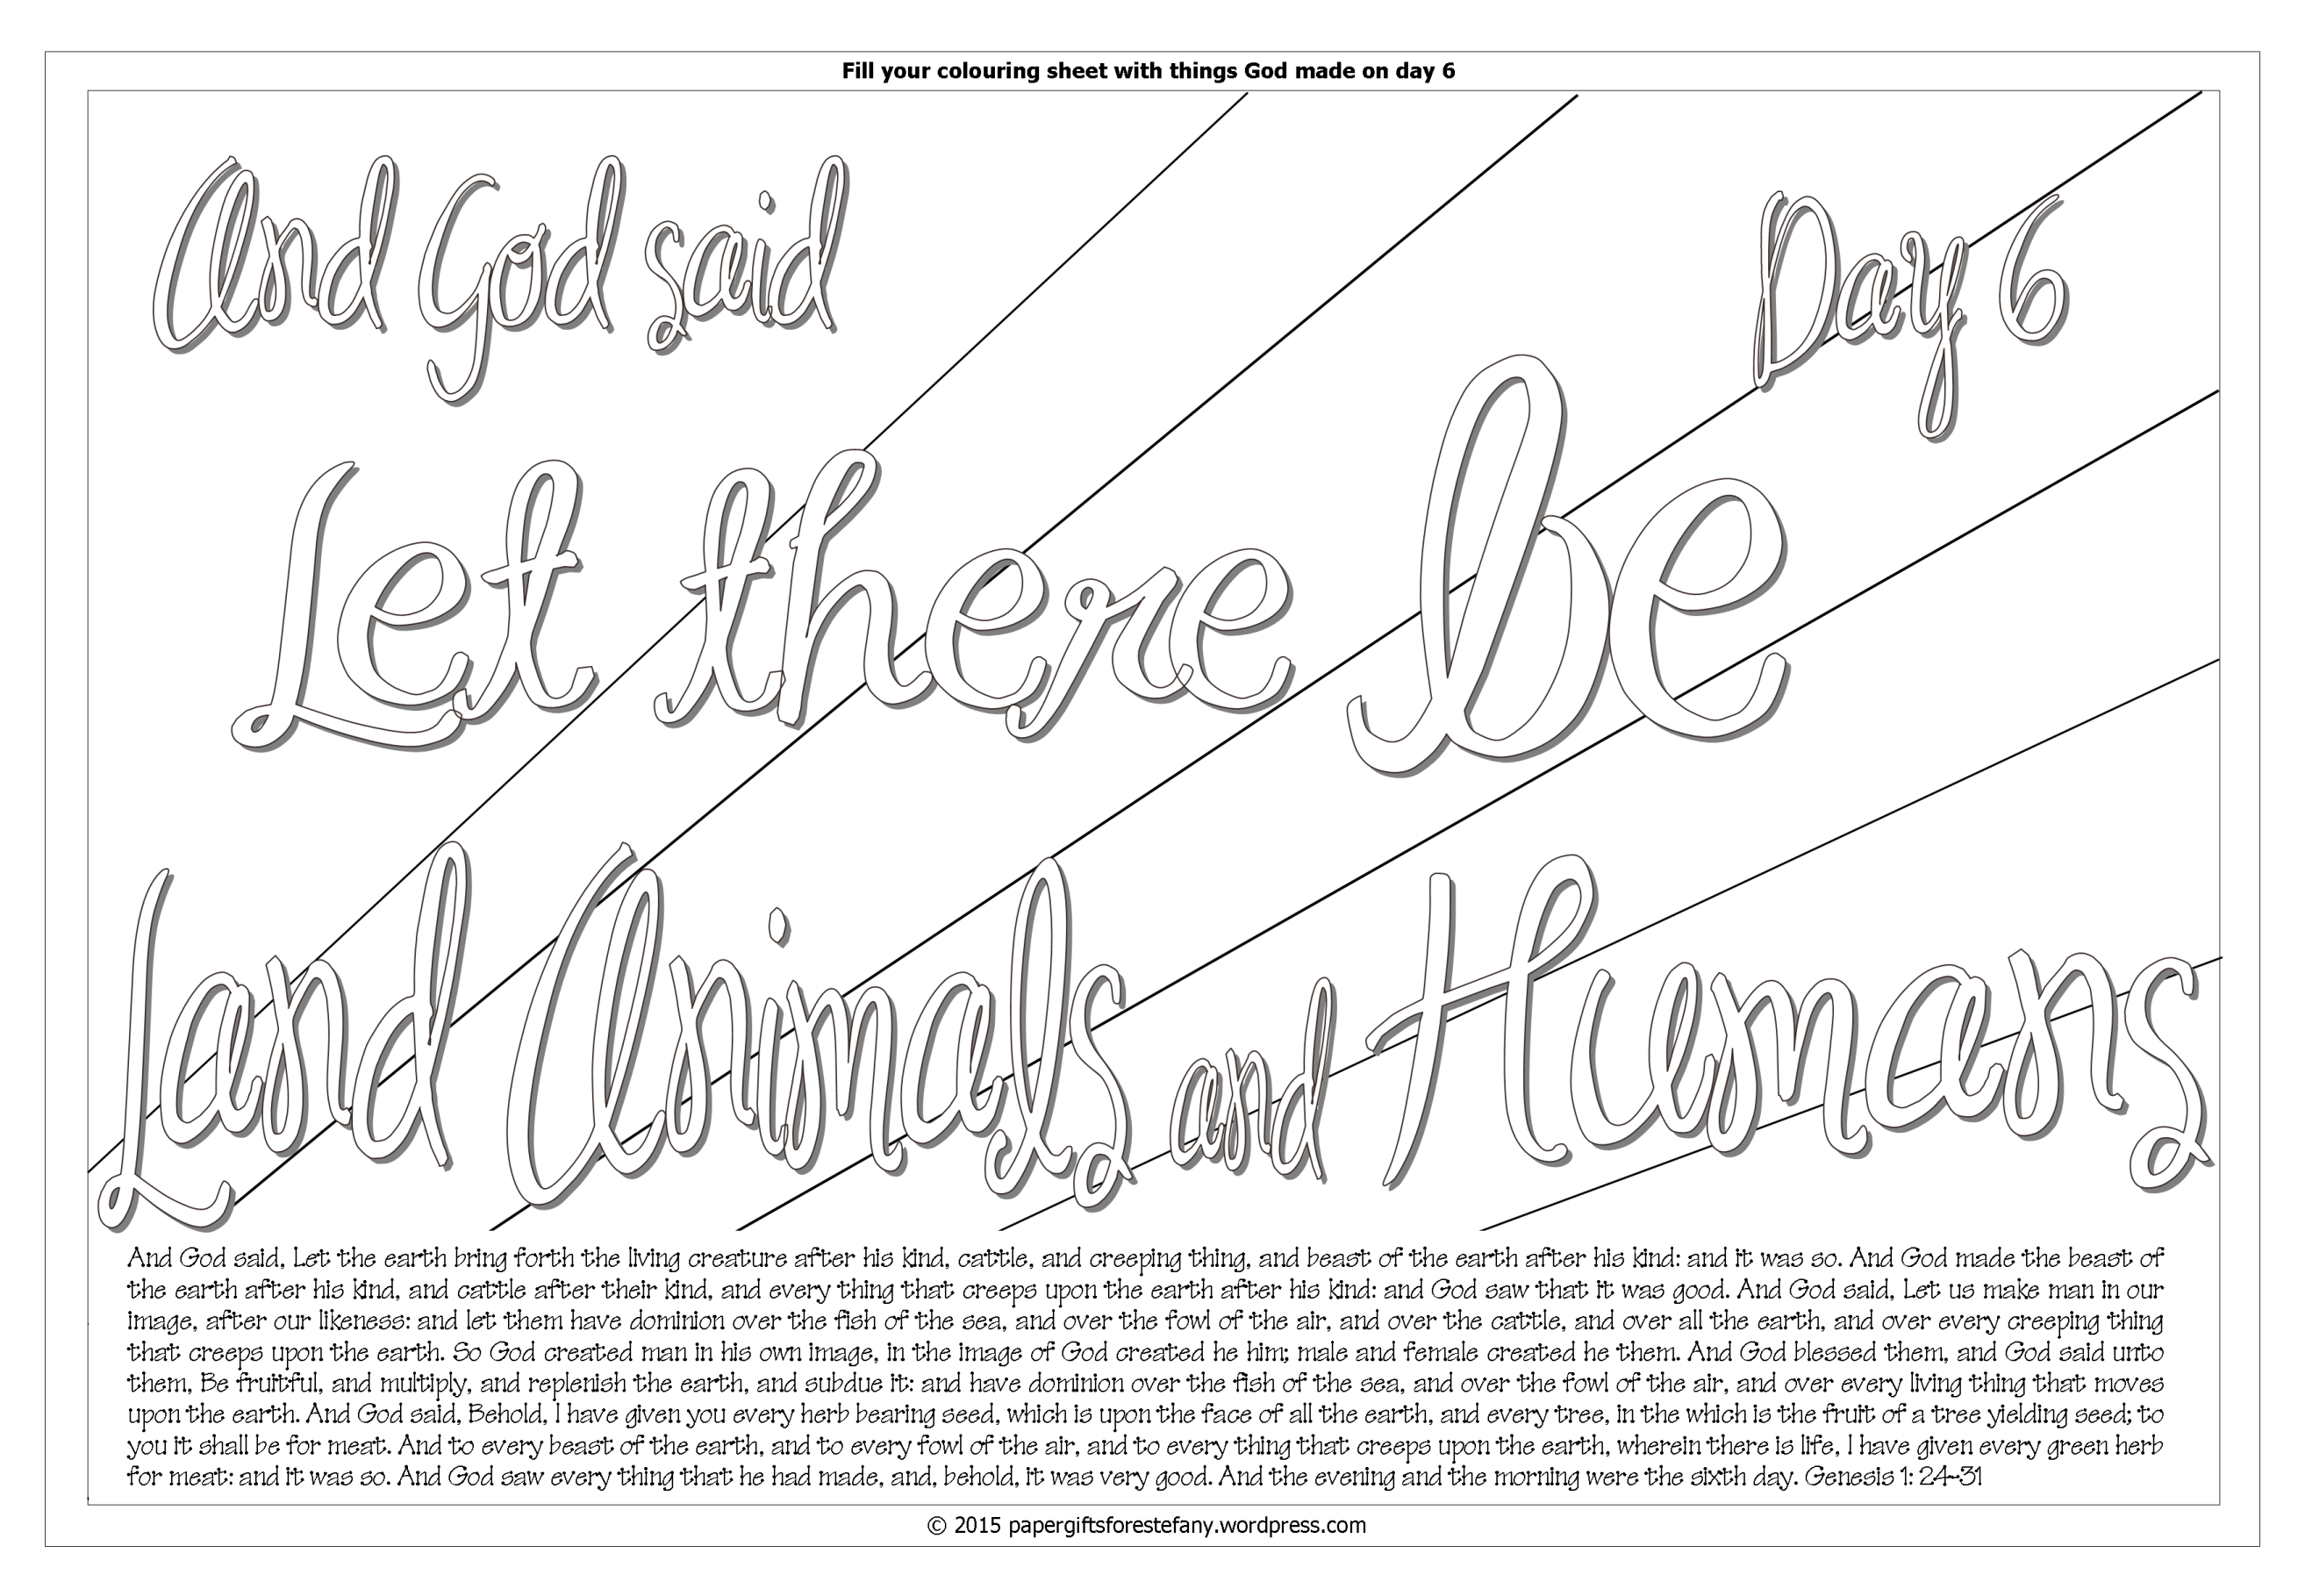 Fill your colouring sheet with things God made on day 6
And God said
Day 6
Let there be
Land Animals and Humans
And God said, Let the earth bring forth the living creature after his kind, cattle, and creeping thing, and beast of the earth after his kind: and it was so. And God made the beast of
the earth after his kind, and cattle after their kind, and every thing that creeps upon the earth after his kind: and God saw that it was good. And God said, Let us make man in our
image, after our likeness: and let them have dominion over the fish of the sea, and over the fowl of the air, and over the cattle, and over all the earth, and over every creeping thing
that creeps upon the earth. So God created man in his own image, in the image of God created he him; male and female created he them. And God blessed them, and God said unto
them, Be fruitful, and multiply, and replenish the earth, and subdue it: and have dominion over the fish of the sea, and over the fowl of the air, and over every living thing that moves
upon the earth. And God said, Behold, I have given you every herb bearing seed, which is upon the face of all the earth, and every tree, in the which is the fruit of a tree yielding seed; to
you it shall be for meat. And to every beast of the earth, and to every fowl of the air, and to every thing that creeps upon the earth, wherein there is life, I have given every green herb
for meat: and it was so. And God saw every thing that he had made, and, behold, it was very good. And the evening and the morning were the sixth day. Genesis 1: 24-31
© 2015 papergiftsforestefany.wordpress.com